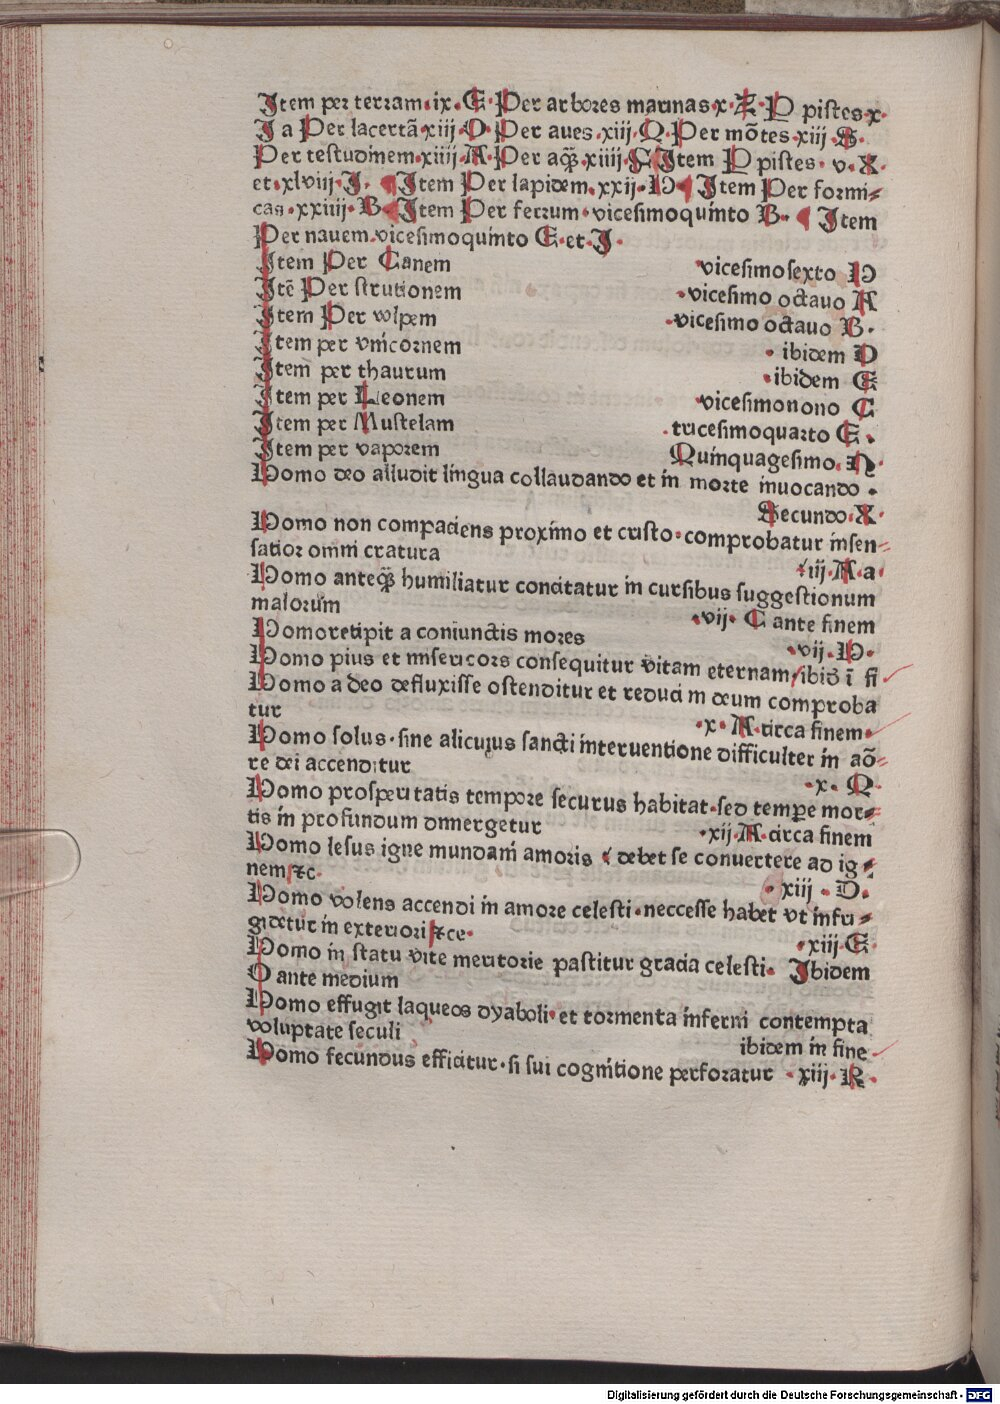 Item per terram.ix.E.Per arbores marinas x.Z.P pistes x.
I a Per lacertã xiij.O.Per aues.xiij.Q.Per mõtes xiij S.
Per testudinem.xiiij.A.Per aqȝ.xiiij.F Item P pistes. v.X.
et.xlviij.I. Item Per lapidem.xxij.D Item Per formi⸗
cas.xxiiij.B Item Per ferrum.vicesimoquinto B. Item
Per nauem.vicesimoquinto E.et.I.
Item Per Canem vicesimosexto D
Itẽ Per strutionem .vicesimo octauo A
Item Per volpem .vicesimo octauo B.
Item per vnicornem . ibidem D
Item per thaurum .ibidem E
Item per Leonem .vicesimonono C
Item per Mustelam .tricesimoquarto E.
Item per vaporem Quinquagesimo.N.
Homo deo alludit lingua collaudando et in morte inuocando.
Secundo.X.
Homo non compaciens proximo et cristo.comprobatur insen⸗
satior omni cratura .iij.A.a.
Homo anteqȝ humiliatur concitatur in cursibus suggestionum
malorum .vij. C ante finem
Homo recipit a coniunctis mores .vij.H.
Homo pius et misericors consequitur vitam eternam/ibid ĩ fi
Homo a deo defluxisse ostenditur et reduci in deum comproba
tur .x.M.circa finem.
Homo solus.sine alicuius sancti interuentione difficulter in aõ⸗
re dei accenditur .x. Q.
Homo prosperitatis tempore securus habitat.sed tempe mor⸗
tis in profundum dimergetur .xij.M.circa finem
Homo lesus igne mundani amoris debet se conuertere ad ig⸗
nem ⁊c. .xiij.D.
Homo volens accendi in amore celesti.neccesse habet vt infri⸗
gidetur in exteriori ⁊ce. .xiij.E.
Homo in statu vite meritorie pascitur gracia celesti. Ibidem
O ante medium
Homo effugit laqueos dyaboli.et tormenta inferni contempta
voluptate seculi ibidem in fine
Homo fecundus efficitur.si sui cognitione perforatur .xiij.R.
Digitalisierung gefördert durch die Deutsche Forschungsgemeinschaft - DFG